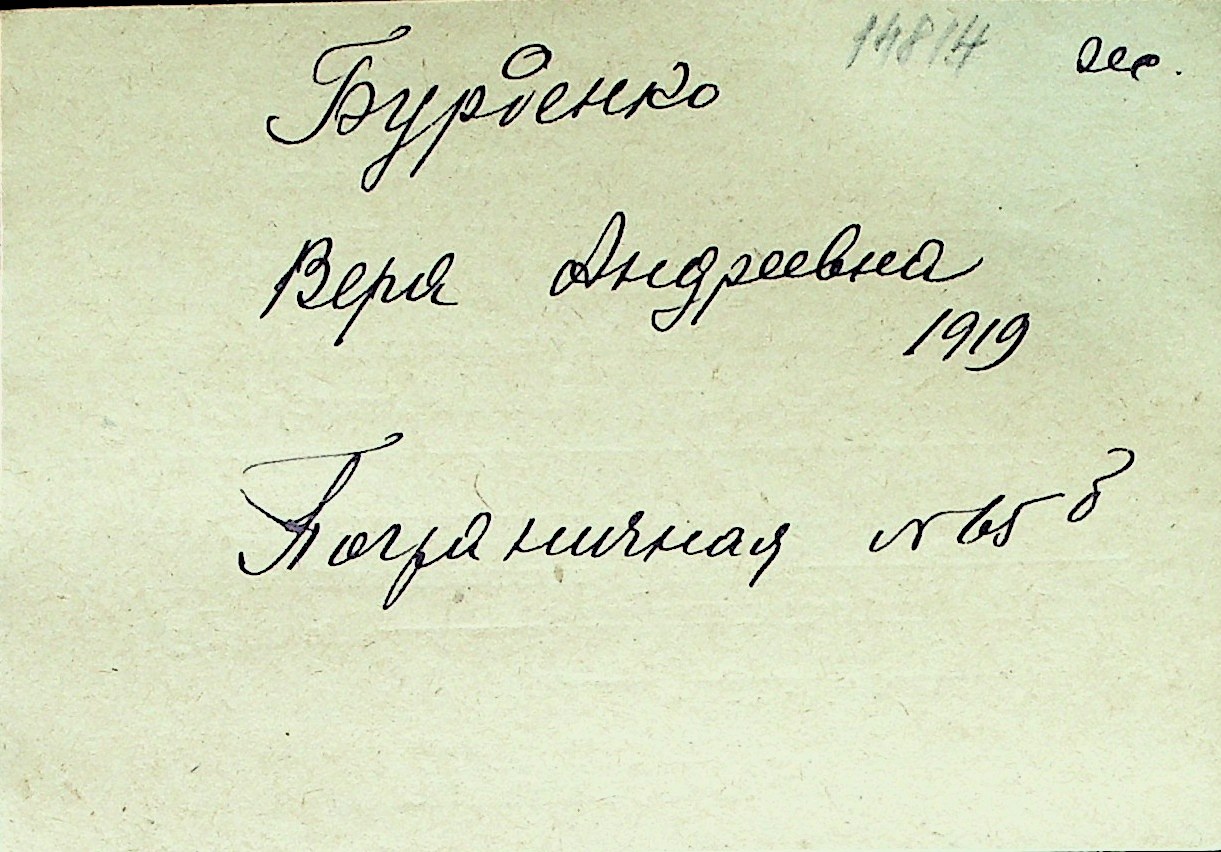 14814 ж.
Бурденко
Вера Андреевна
1919
Пограничная № 65 б